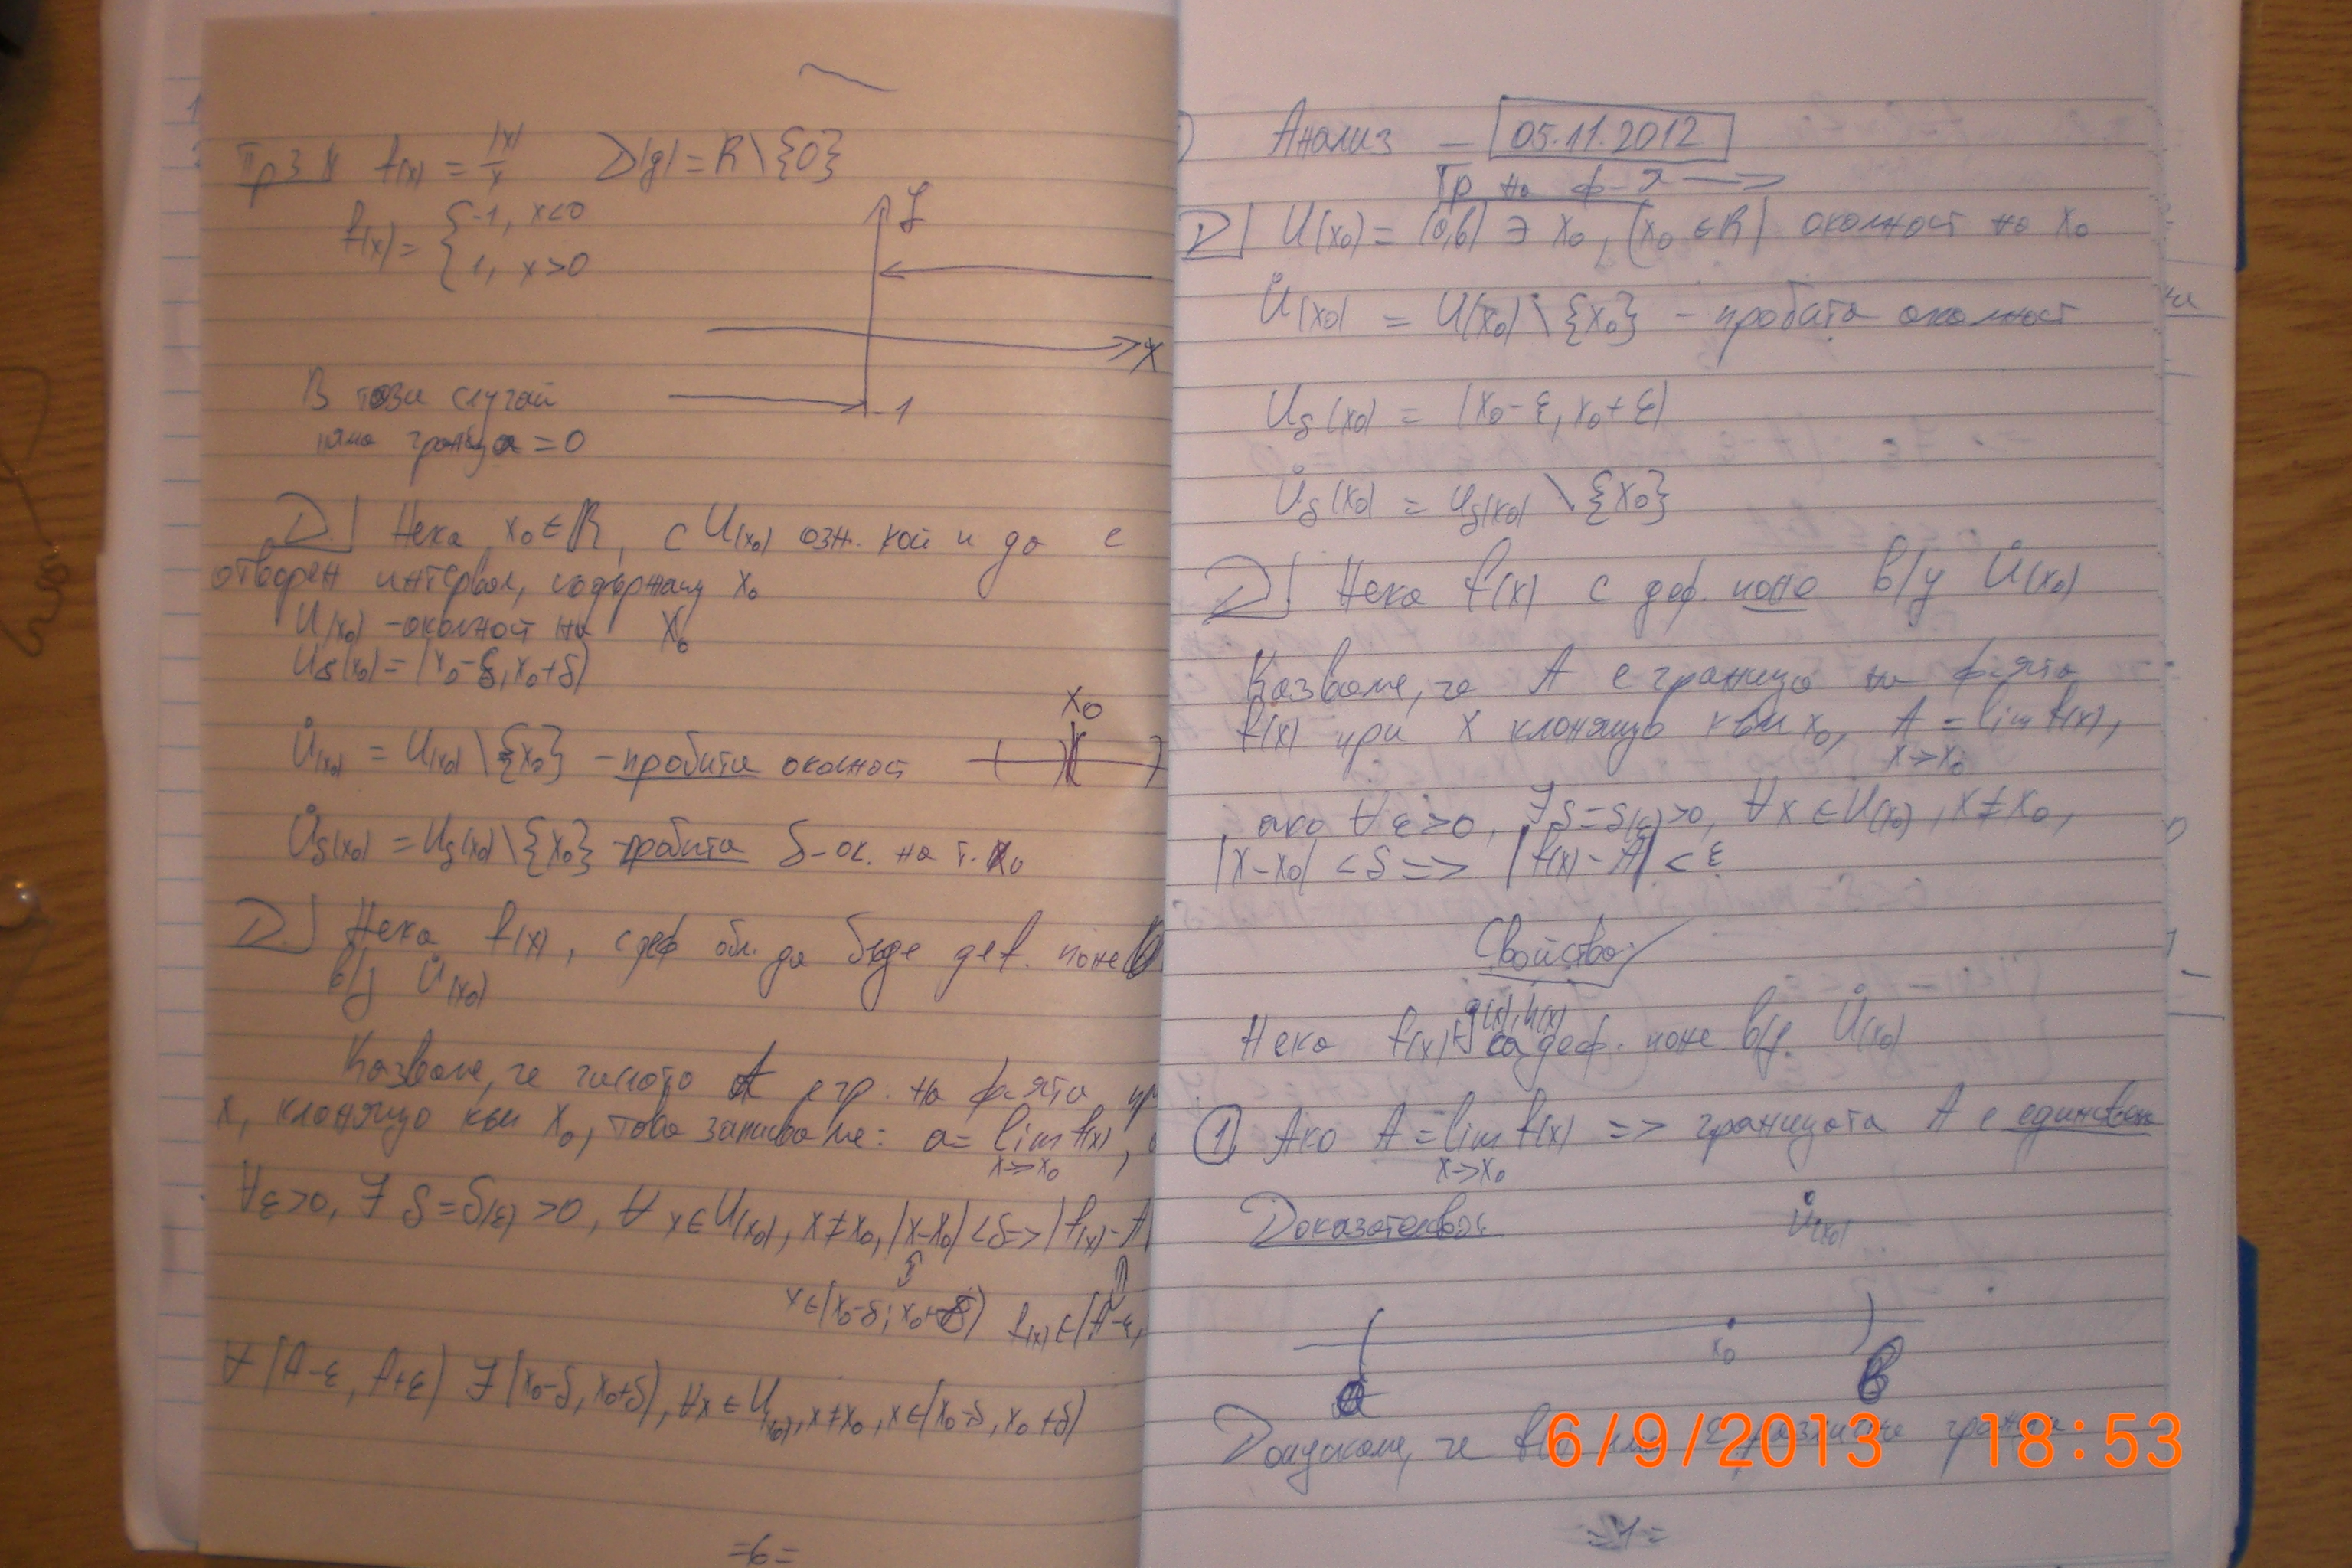 Пр 3
f(x) = |x|/x   D(g) = R\{0}
f(x) = { -1, x<0
1, x>0
y
x
-1
В този случай
няма граница = 0
D] Нека x₀ ∈ R, с U(x₀) озн. кой и да е
отворен интервал, съдържащ x₀
U(x₀) - околност на x₀
U_δ(x₀) = (x₀-δ, x₀+δ)
x₀
Ů(x₀) = U(x₀)\{x₀} - пробита околност
Ů_δ(x₀) = U_δ(x₀)\{x₀} - пробита δ-ок. на т. x₀
D] Нека f(x), с деф. обл. да бъде def. поне
в/у Ů(x₀)
Казваме, че числото A е гр. на ф-ята пр
x, клонящо към x₀, това записваме: a = lim f(x),
x->x₀
∀ε>0, ∃ δ=δ(ε)>0, ∀x∈U(x₀), x≠x₀, |x-x₀|<δ => |f(x)-A|
x∈(x₀-δ; x₀+δ)   f(x)∈(A-ε,
∀ (A-ε, A+ε) ∃ (x₀-δ, x₀+δ), ∀x∈U(x₀), x≠x₀, x∈(x₀-δ, x₀+δ)
=6=
Анализ - 05.11.2012
Гр на ф-я ->
D] U(x₀) = (a,b) ∋ x₀, (x₀∈R) околност на x₀
Ů(x₀) = U(x₀)\{x₀} - пробита околност
U_δ(x₀) = (x₀-ε, x₀+ε)
Ů_δ(x₀) = U_δ(x₀)\{x₀}
D] Нека f(x) с деф. поне в/у Ů(x₀)
Казваме, че A е граница на ф-ята
f(x) при x клонящо към x₀, A = lim f(x),
x->x₀
ако ∀ε>0, ∃δ=δ(ε)>0, ∀x∈U(x₀), x≠x₀,
|x-x₀|<δ => |f(x)-A|<ε
Свойства
g(x), h(x)
Нека f(x) са деф. поне в/у Ů(x₀)
① Ако A = lim f(x) => границата A е единствена
x->x₀
Доказателство:
Ů(x₀)
x₀
a   b
Допускаме, че f(x) различни граници
6/9/2013 18:53